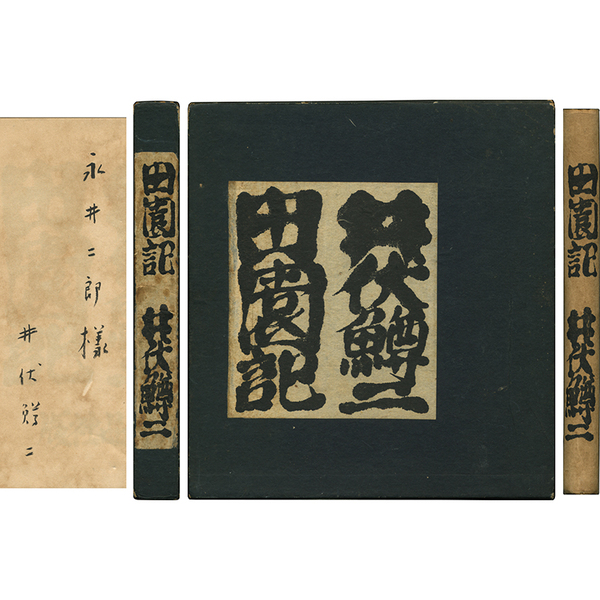 永井二郎様
井伏鱒二
田園記 井伏鱒二
井伏鱒二
田園記
田園記 井伏鱒二